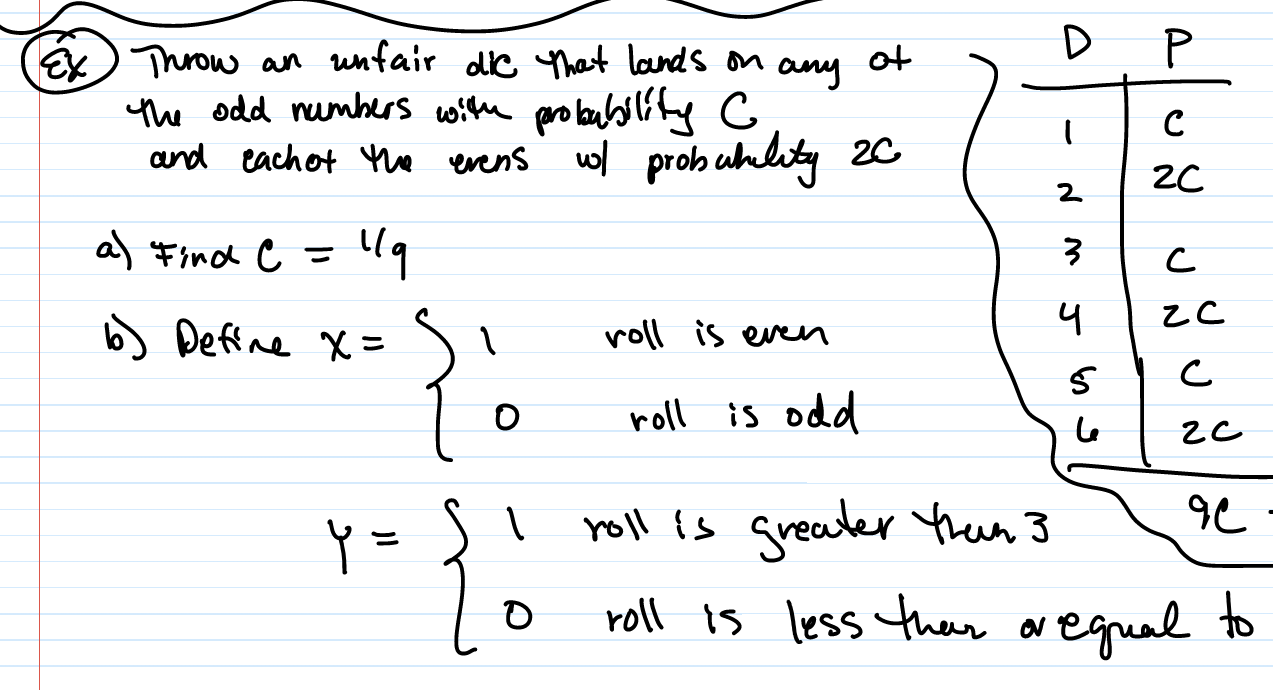 Ex Throw an unfair die that lands on any of
the odd numbers with probability C
and each of the evens w/ probability 2C
a) Find C = 1/9
b) Define X = { 1 roll is even
0 roll is odd
Y = { 1 roll is greater than 3
0 roll is less than or equal to
D P
1 C
2 2C
3 C
4 2C
5 C
6 2C
9C